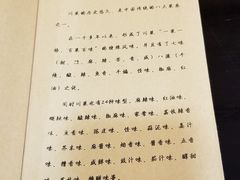 川菜的历史悠久，是中国传统的八大菜系之
一。
在一千多年以来，形成了川菜"一菜一
格，百菜百味"的独特风味，用七味
(甜、酸、麻、辣、苦、香、咸)八滋(干
烧、酸、辣、鱼香、干煸、怪味、椒麻、红
油)之说。
同时川菜也有24种味型，麻辣味、红油味、
糊辣味、酸辣味、椒麻味、家常味、荔枝味、
鱼香味、陈皮味、怪味、蒜泥味、姜汁
味、芥末味、麻酱味、烟香味、酱香味、五香
味、糟香味、咸鲜味、豉汁味、茄汁味、醇甜
味、